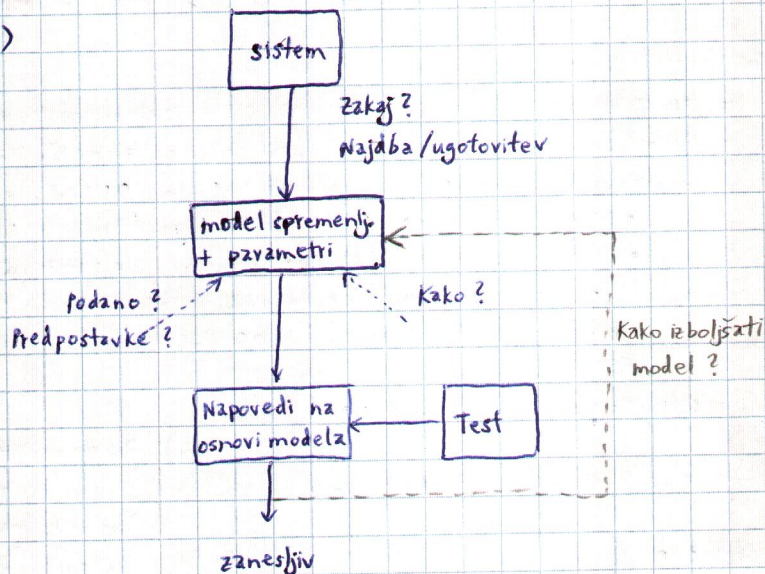 )
sistem
Zakaj ?
Najdba/ugotovitev
model spremenlj.
+ parametri
Podano ?
Predpostavke ?
Kako ?
Kako izboljšati
model ?
Napovedi na
osnovi modela
Test
zanesljiv